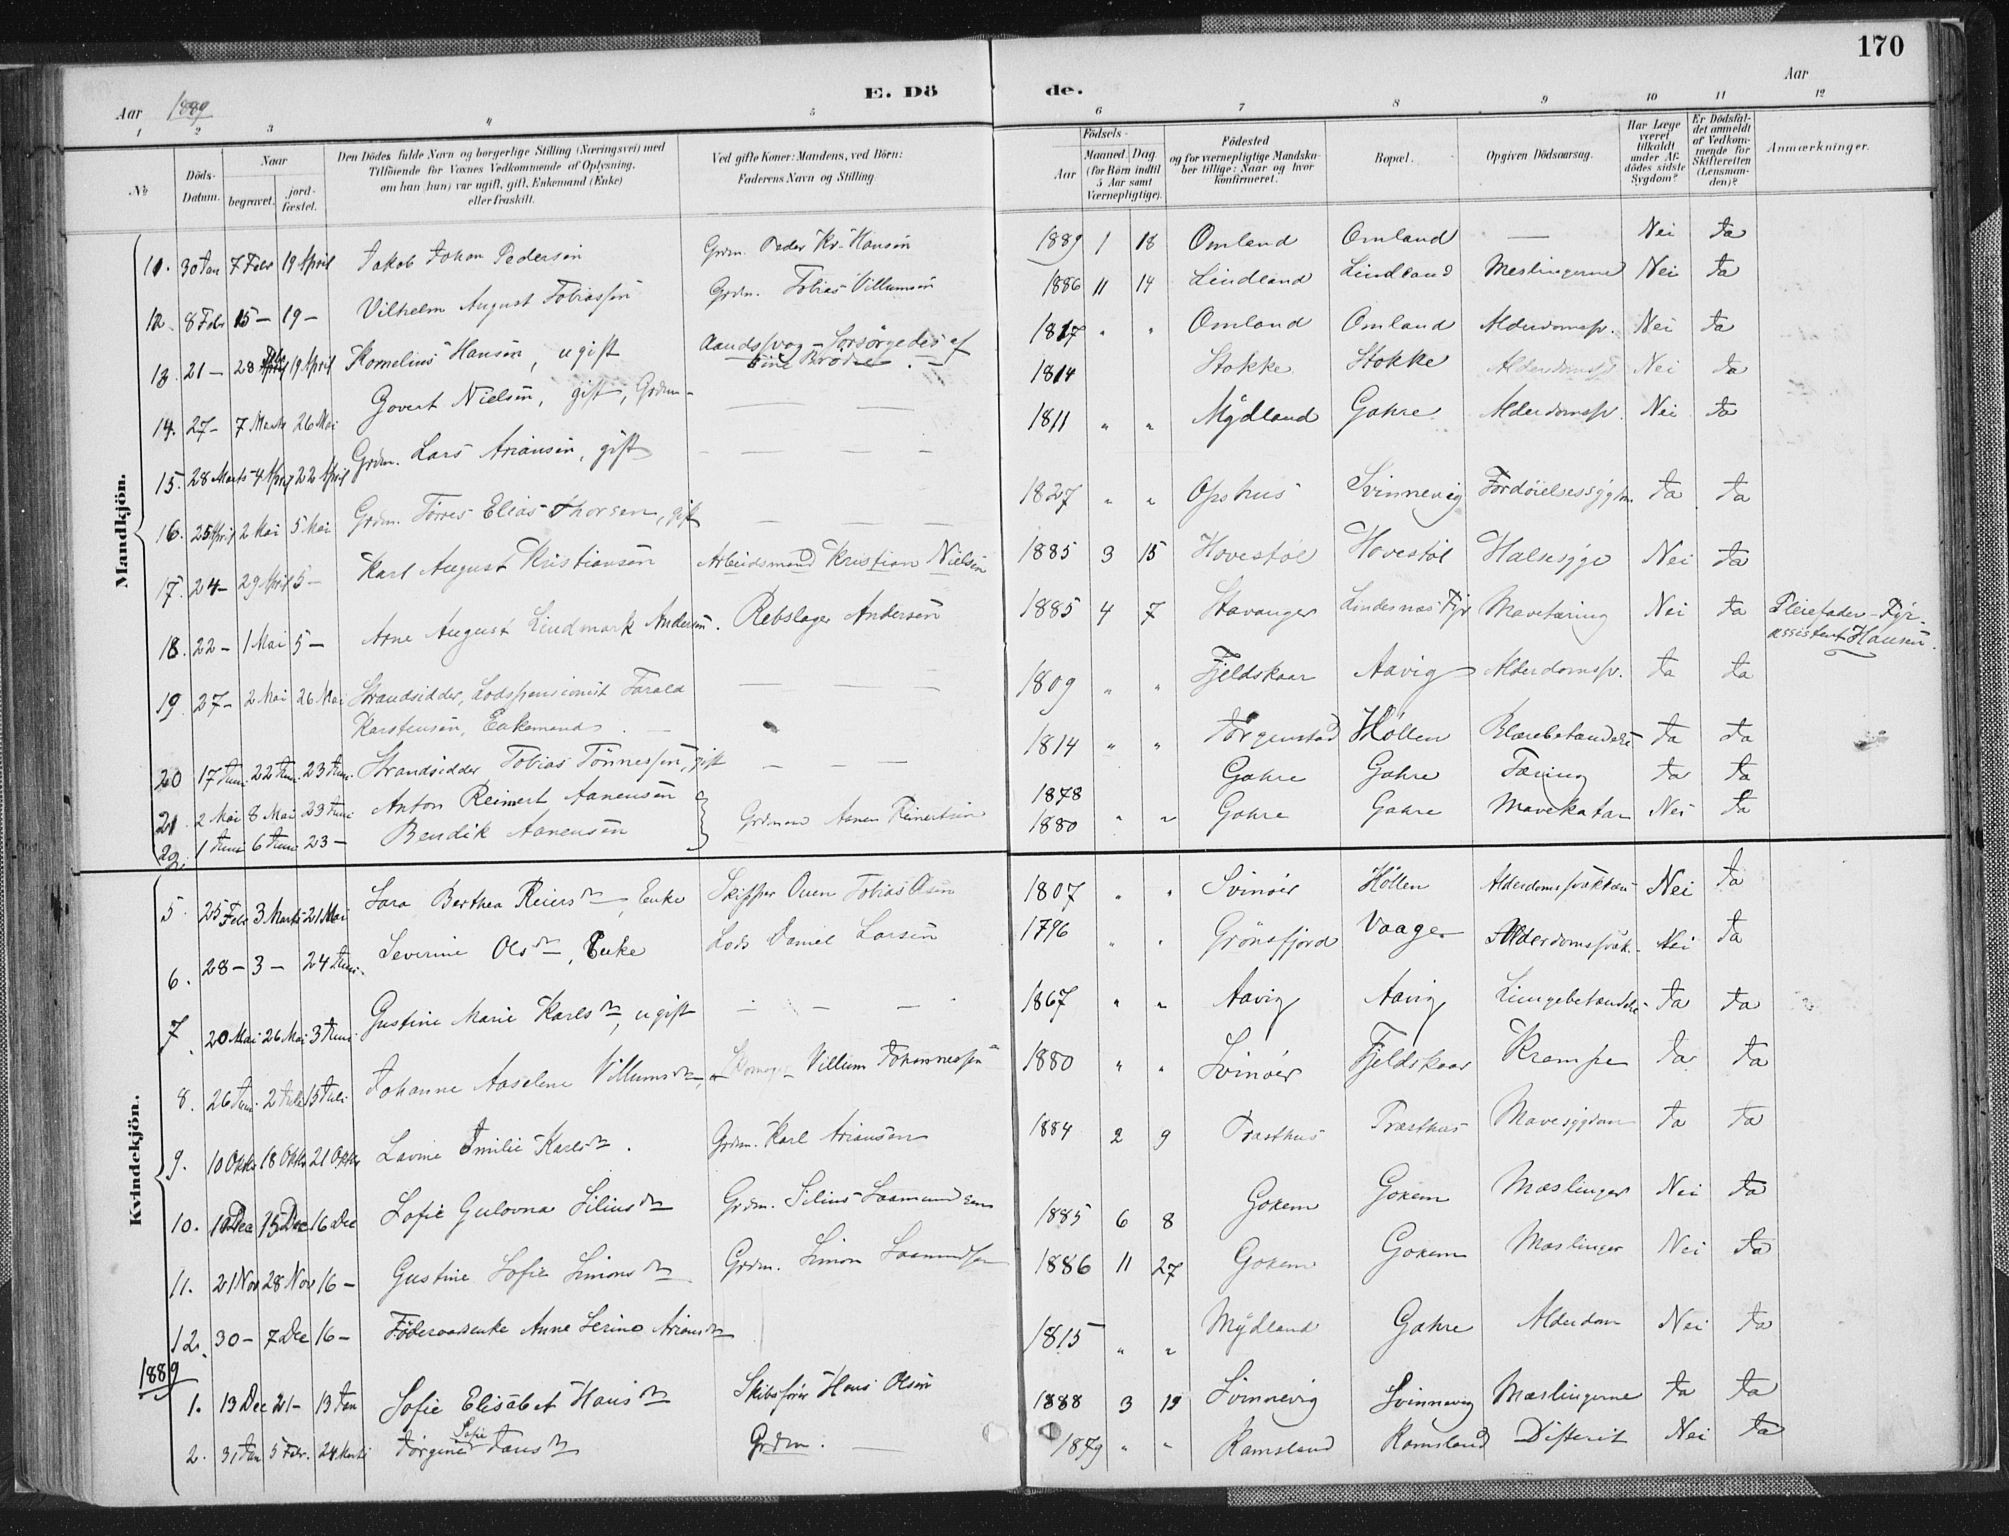 170
Aar 1889
E. Dö de.
Aar
1 2 3 4 5 6 7 8 9 10 11 12
No
Döds-Datum.
Naar
begravet.
jord-fæstet.
Den Dödes fulde Navn og borgerlige Stilling (Næringsvei) med
Tilföiende for Voxnes Vedkommende af Oplysning,
om han (hun) var ugift, gift, Enkemand (Enke)
eller fraskilt.
Ved gifte Koner: Mandens, ved Börn:
Faderens Navn og Stilling.
Födsels-
Aar
Maaned. Dag
(for Börn indtil
5 Aar samt
Værnepligtige).
Födested
og for værnepligtige Mandska-
ber tillige: Naar og hvor
konfirmeret.
Bopæl.
Opgiven Dödsaarsag.
Har Læge
været
tilkaldt
under Af-
dödes sidste
Sygdom?
Er Dödsfal-
det anmeldt
af Vedkom-
mende for
Skifteretten
(Lensman-
den)?
Anmærkninger.
Mandkjön.
11. 30 Jan 7 Febr 19 April Jakob Johan Pedersen Grdm. Peder Kr. Hansen 1889 1 18 Omland Omland — Nei Ja
12. 8 Febr 15 – 19 – Vilhelm August Tobiassen Grdm. Tobias Villumsen 1886 11 14 Lindland Lindland Meslingerne Nei Ja
13. 21 – 28 Febr 19 April Kornelius Hansen, ugift Aandssvag – Forsørgedes af sine Brødre. 1817 " " Omland Omland Alderdomssv. Nei Ja
14. 27 – 7 Marts 26 Mai Govert Nielsen, gift, Grdm. — — 1814 Stokke Stokke Alderdomssv. Nei Ja
15. 28 Marts 4 April 22 April Grdm. Lars Ariansen, gift – – – – 1811 " " Mydland Gahre Alderdomssv. Nei Ja
16. 25 April 2 Mai 5 Mai Grdm. Tørres Elias Thorsen, gift — — — 1827 " " Opshus Svinnevig Fordøielsessygdom Ja Ja
17. 24 – 29 April 5 – Karl August Kristiansen Arbeidsmand Kristian Nielsen 1885 3 15 Hovestøl Hovestøl Halssyge Nei Ja
18. 22 – 1 Mai 5 – Arne August Lindmark Andersen. Rebslager Andersen 1885 4 7 Stavanger Lindesnæs Fyr Mavetæring Nei Ja Pleiefader – Fyr-
assistent Hansen.
19 27 – 2 Mai 26 Mai Strandsidder, Lodspensionist Tarald — — — 1809 " " Fjeldskaar Aavig Alderdomssv. Ja Ja
Karstensen, Enkemand
20 17 Juni 22 Juni 23 Juni Strandsidder Tobias Tønnessen, gift – – – 1814 " " Jørgenstad Høllen Blærebetændelse Ja Ja
21. 2 Mai 8 Mai 23 Juni Anton Reinert Aanensen } Grdmand Aanen Reinertsen 1878 Gahre Gahre Tæring Ja Ja
22. 1 Juni 6 Juni 23 – Bendik Aanensen 1880 " " Gahre Gahre Mavekatar Nei Ja
Kvindekjön.
5. 25 Febr 3 Marts 21 Mai Sara Berthea Reiersdtr, Enke Skipper Ouen Tobias Olsen 1807 " " Svinøer Høllen Alderdomssvækkelse Nei Ja
6. 28 – 3 – 24 Juni Severine Olsdtr, Enke Lods Daniel Larsen 1796 " " Grønsfjord Vaage Alderdomssvæk. Nei Ja
7. 20 Mai 26 Mai 3 Juni Gustine Marie Karlsdtr, ugift – – – 1867 " " Aavig Aavig Lungebetændelse Ja Ja
8. 26 Juni 2 Juli 13 Juli Johanne Aaselene Villumsdtr, Villum Johannessen 1880 " " Svinøer Fjeldskaar Krampe Ja Ja
9. 10 Oktr 18 Oktr 21 Oktr Lavine Emilie Karlsdtr. Grdm. Karl Ariansen 1884 2 9 Træsthus Træsthus Mavesygdom Ja Ja
10. 10 Dec 15 Dec 16 Dec Sofie Gulovna Siliusdtr Grdm. Silius Saamundsen 1885 6 8 Goxem Goxem Mæslinger Nei Ja
11. 21 Nov 28 Nov 16 – Gustine Sofie Simonsdtr Grdm. Simon Saamundsen 1886 11 27 Goxem Goxem Mæslinger Nei Ja
12. 30 – 7 Dec 16 – Føderaadsenke Anne Serine Ariansdtr 1815 " " Mydland Gahre Alderdom Nei Ja
1889
1. 13 Dec 21 – 13 Jan Sofie Elisabet Hansdtr Skibsfører Hans Olsen 1888 3 19 Svinnevig Svinnevig Mæslingerne Ja Ja
2. 31 Jan 5 Febr. 24 Marts Jørgine Sofie Jansdtr Grdm. — 1879 " " Ramsland Ramsland Difterit Nei Ja